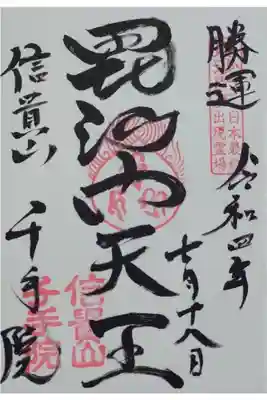 勝運
日本最初
出現霊場
令和四年
七月十八日
毘沙門天王
信貴山
千手院
信貴山
千手院